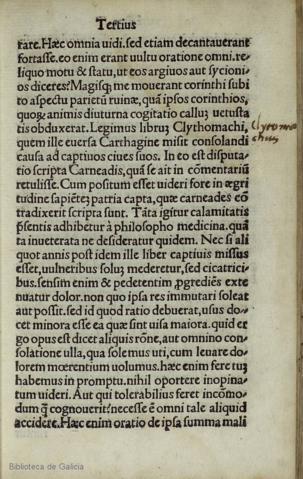 Tertius
rare. Hæc omnia uidi. sed etiam decantauerant
fortasse. eo enim erant uultu oratione omni. re/
liquo motu & statu, ut eos argiuos aut sycioni/
os diceres? Magisq; me mouerant corinthi subi
to aspectu parietū ruinæ, quā ipsos corinthios,
quorꝝ animis diuturna cogitatio callus̄ uetusta
tis obduxerat. Legimus librus̄ Clythomachi,
quem ille euersa Carthagine misit consolandi
causa ad captiuos ciues suos. In eo est disputa/
tio scripta Carneadis, quā se ait in cōmentariū
retulisse. Cum positum esset uideri fore in ægri
tudine sapiētē patria capta, quæ carneades cō
tradixerit scripta sunt. Tāta igitur calamitatis
p̄sentis adhibetur à philosopho medicina. quā
ta inueterata ne desideratur quidem. Nec si ali
quot annis post idem ille liber captiuis missus
esset, uulneribus solus̄ mederetur, sed cicatrici/
bus. sensim enim & pedetentim ꝓgrediēs exte
nuatur dolor. non quo ipsa res immutari soleat
aut possit. sed id quod ratio debuerat, usus do/
cet minora esse ea quæ sint uisa maiora. quid er
go opus est dicet aliquis rōne, aut omnino con/
solatione ulla, qua solemus uti, cum leuare do/
lorem mœrentium uolumus. hæc enim fere tuꝫ
habemus in promptu. nihil oportere inopina/
tum uideri. Aut qui tolerabilius feret incōmo/
dum q̄ cognouerit? necesse ē omni tale aliquid
accidere. Hæc enim oratio de ipsa summa mali
Biblioteca de Galicia